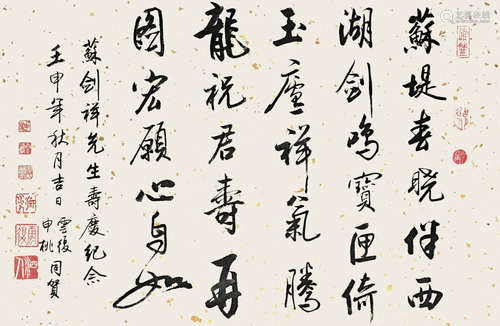 蘇堤春晓伴西
湖劍鳴寶匣倚
玉廬祥氣騰
龍祝君壽再
圖宏願心自如
蘇劍祥先生壽慶紀念
壬申年秋月吉日
申桃
同賀